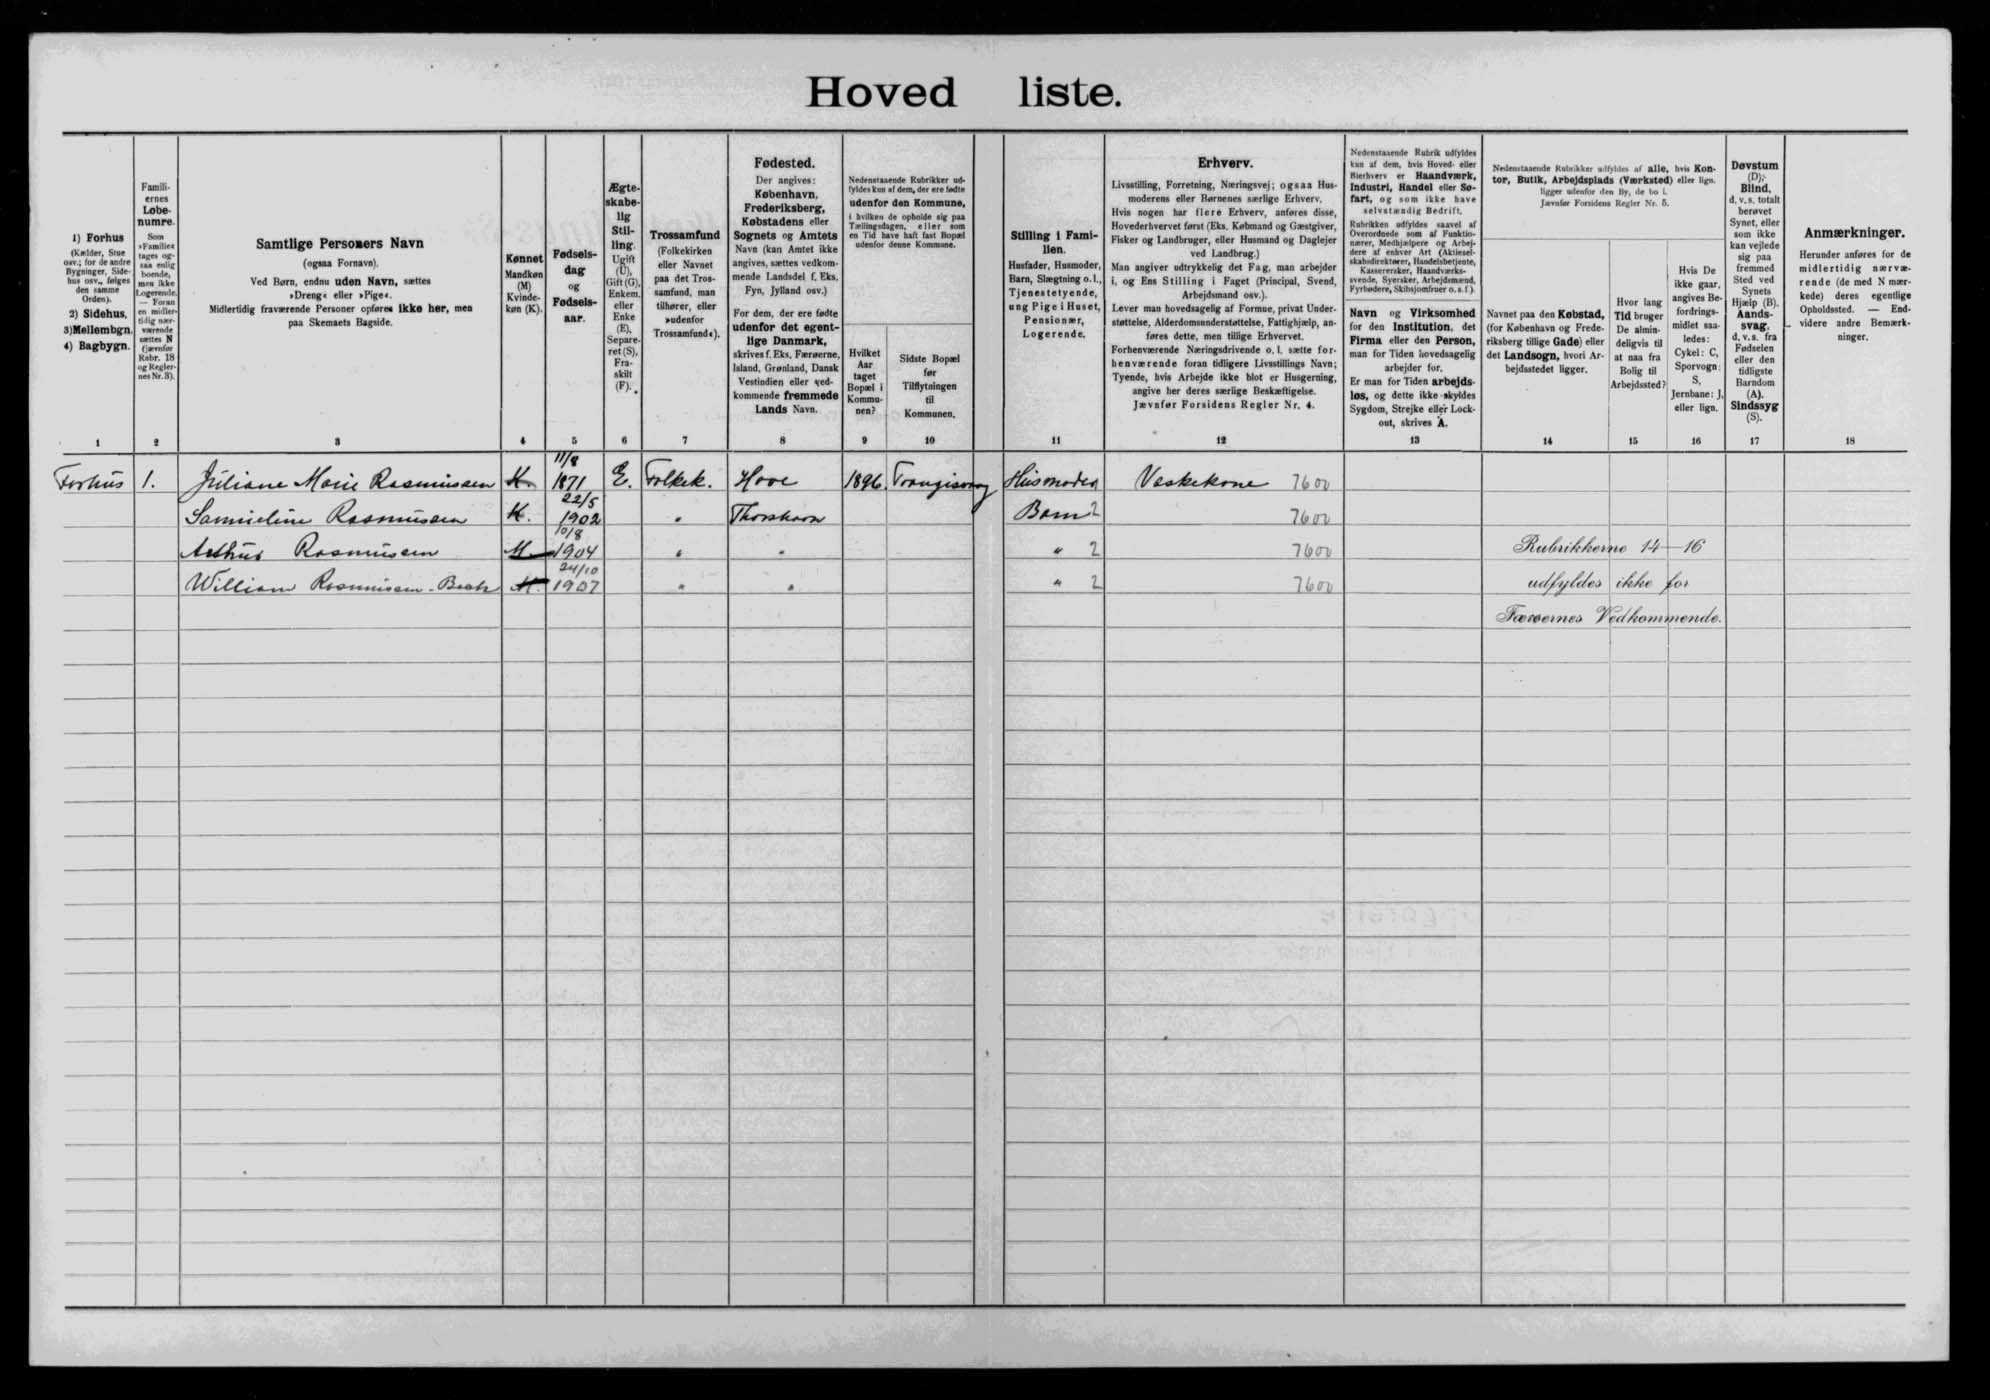 Hoved liste.
1) Forhus
(Kælder, Stue
osv.; for de andre
Bygninger, Side-
hus osv., følges
den samme
Orden).
2) Sidehus,
3) Mellembgn.
4) Bagbygn.
1
Famili-
ernes
Løbe-
numre.
Som
»Familie«
tages og-
saa enlig
boende,
men ikke
Logerende.
— Foran
en midler-
tidig nær-
værende
sættes N
(jævnfør
Rubr. 18
og Regler-
nes Nr. 3).
2
Samtlige Personers Navn
(ogsaa Fornavn).
Ved Børn, endnu uden Navn, sættes
»Dreng« eller »Pige«.
Midlertidig fraværende Personer opføres ikke her, men
paa Skemaets Bagside.
3
Kønnet
Mandkøn
(M)
Kvinde-
køn (K).
4
Fødsels-
dag
og
Fødsels-
aar.
5
Ægte-
skabe-
lig
Stil-
ling.
Ugift
(U),
Gift (G),
Enkem.
eller
Enke
(E),
Separe-
ret (S),
Fra-
skilt
(F).
6
Trossamfund
(Folkekirken
eller Navnet
paa det Tros-
samfund, man
tilhører, eller
»udenfor
Trossamfund«).
7
Fødested.
Der angives:
København,
Frederiksberg,
Købstadens eller
Sognets og Amtets
Navn (kan Amtet ikke
angives, sættes vedkom-
mende Landsdel f. Eks.
Fyn, Jylland osv.)
For dem, der ere fødte
udenfor det egent-
lige Danmark,
skrives f. Eks. Færøerne,
Island, Grønland, Dansk
Vestindien eller ved-
kommende fremmede
Lands Navn.
8
Nedenstaaende Rubrikker ud-
fyldes kun af dem, der ere fødte
udenfor den Kommune,
i hvilken de opholde sig paa
Tællingsdagen, eller som
en Tid have haft fast Bopæl
udenfor denne Kommune.
Hvilket
Aar
taget
Bopæl i
Kommu-
nen?
9
Sidste Bopæl
før
Tilflytningen
til
Kommunen.
10
Stilling i Fami-
lien.
Husfader, Husmoder,
Barn, Slægtning o. l.,
Tjenestetyende,
ung Pige i Huset,
Pensionær,
Logerende.
11
Erhverv.
Livsstilling, Forretning, Næringsvej; ogsaa Hus-
moderens eller Børnenes særlige Erhverv.
Hvis nogen har flere Erhverv, anføres disse,
Hovederhvervet først (Eks. Købmand og Gæstgiver,
Fisker og Landbruger, eller Husmand og Daglejer
ved Landbrug.)
Man angiver udtrykkelig det Fag, man arbejder
i, og Ens Stilling i Faget (Principal, Svend,
Arbejdsmand osv.).
Lever man hovedsagelig af Formue, privat Under-
støttelse, Alderdomsunderstøttelse, Fattighjælp, an-
føres dette, men tillige Erhvervet.
Forhenværende Næringsdrivende o. l. sætte for-
henværende foran tidligere Livsstillings Navn;
Tyende, hvis Arbejde ikke blot er Husgerning,
angive her deres særlige Beskæftigelse.
Jævnfør Forsidens Regler Nr. 4.
12
Nedenstaaende Rubrik udfyldes
kun af dem, hvis Hoved- eller
Bierhverv er Haandværk,
Industri, Handel eller Sø-
fart, og som ikke have
selvstændig Bedrift.
Rubrikken udfyldes saavel af
Overordnede som af Funktio-
nærer, Medhjælpere og Arbej-
dere af enhver Art (Aktiesel-
skabsdirektører, Handelsbetjente,
Kassererske​r, Haandværks-
svende, Syersker, Arbejdsmænd,
Fyrbødere, Skibsjomfruer o. s. f.).
Navn og Virksomhed
for den Institution, det
Firma eller den Person,
man for Tiden hovedsagelig
arbejder for.
Er man for Tiden arbejds-
løs, og dette ikke skyldes
Sygdom, Strejke eller Lock-
out, skrives A.
13
Nedenstaaende Rubrikker udfyldes af alle, hvis Kon-
tor, Butik, Arbejdsplads (Værksted) eller lign.
ligger udenfor den By, de bo i.
Jævnfør Forsidens Regler Nr. 5.
Navnet paa den Købstad,
(for København og Frede-
riksberg tillige Gade) eller
det Landsogn, hvori Ar-
bejdsstedet ligger.
14
Hvor lang
Tid bruger
De almin-
deligvis til
at naa fra
Bolig til
Arbejdssted?
15
Hvis De
ikke gaar,
angives Be-
fordrings-
midlet saa-
ledes:
Cykel: C,
Sporvogn:
S,
Jernbane: J,
eller lign.
16
Døvstum
(D);
Blind,
d. v. s. totalt
berøvet
Synet, eller
som ikke
kan vejlede
sig paa
fremmed
Sted ved
Synets
Hjælp (B).
Aands-
svag,
d. v. s. fra
Fødselen
eller den
tidligste
Barndom
(A).
Sindssyg
(S).
17
Anmærkninger.
Herunder anføres for de
midlertidig nærvæ-
rende (de med N mær-
kede) deres egentlige
Opholdssted. — End-
videre andre Bemærk-
ninger.
18
Forhus 1. Juliane Marie Rasmussen K 11/8 1871 E. Folkek. Hove 1896. Trangisvaag Husmoder Vaskekone 7600
Samueline Rasmussen K. 22/5 1902 " Thorshavn Barn 2 7600
Arthur Rasmussen M 10/8 1904 " " " 2 7600 Rubrikkerne 14—16
William Rasmussen - M. 24/10 1907 " " " 2 7600 udfyldes ikke for
Færøernes Vedkommende.